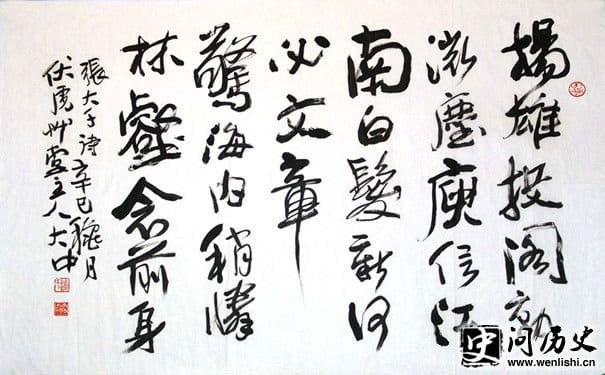 揚雄投閣動
微塵庾信江
南白髮新何
必文章
驚海内稍憐
林壑念前身
張大千詩辛巳穐月
伏虎艸堂主人大中
史问历史
www.wenlishi.cn